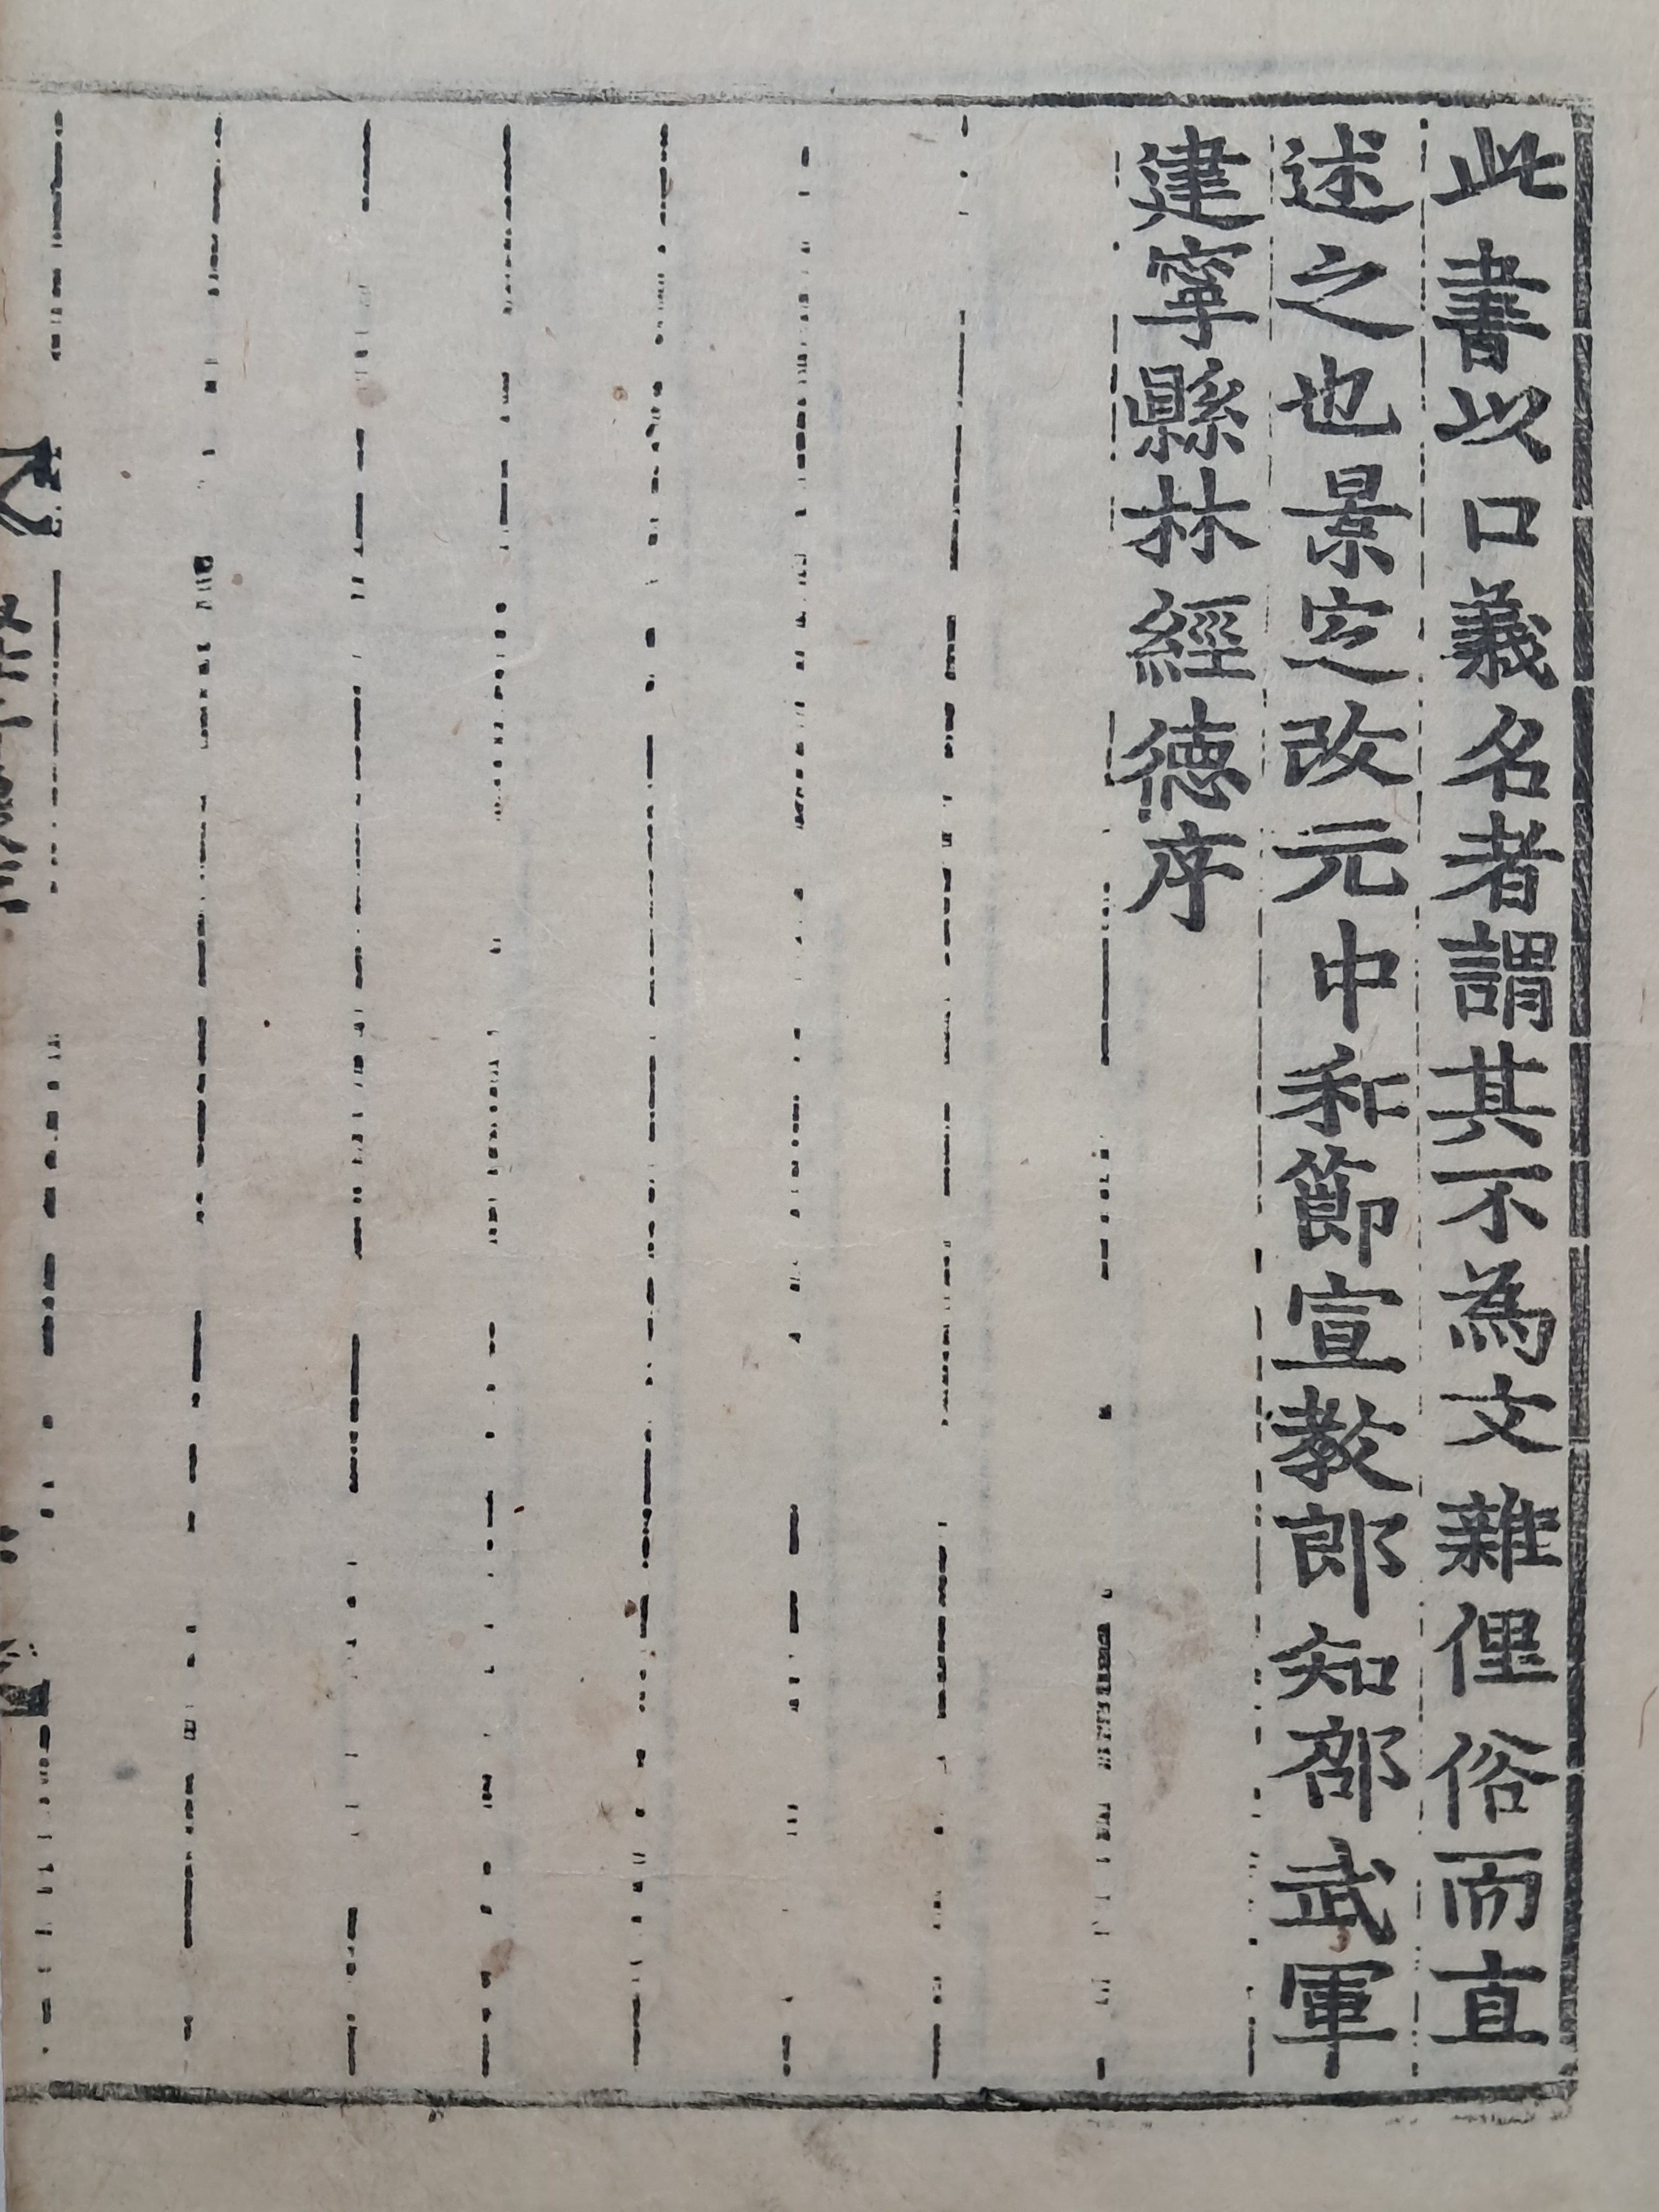 此書以口義名者謂其不為文雜俚俗而直
述之也景定改元中和節宣教郎知邵武軍
建寧縣林經德序